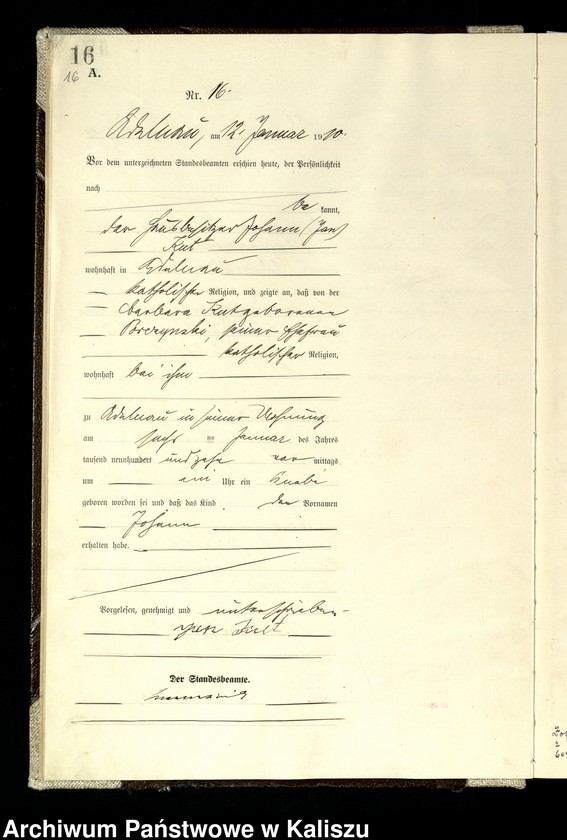 16
16 A.
Nr. 16.
Adelnau, am 12. Januar 1910.
Vor dem unterzeichneten Standesbeamten erschien heute, der Persönlichkeit
nach
be kannt,
der Hausbesitzer Johann (Jan)
Kut
wohnhaft in Adelnau
katholischer Religion, und zeigte an, daß von der
Barbara Kut geborenen
Borczynski, seiner Ehefrau
katholischer Religion,
wohnhaft bei ihm
zu Adelnau in seiner Wohnung
am sechs ten Januar des Jahres
tausend neunhundert und zehn vor mittags
um ein Uhr ein Knabe
geboren worden sei und daß das Kind den Vornamen
Johann
erhalten habe.
Vorgelesen, genehmigt und unterschrieben
Jan Kut
Der Standesbeamte.
Archiwum Państwowe w Kaliszu